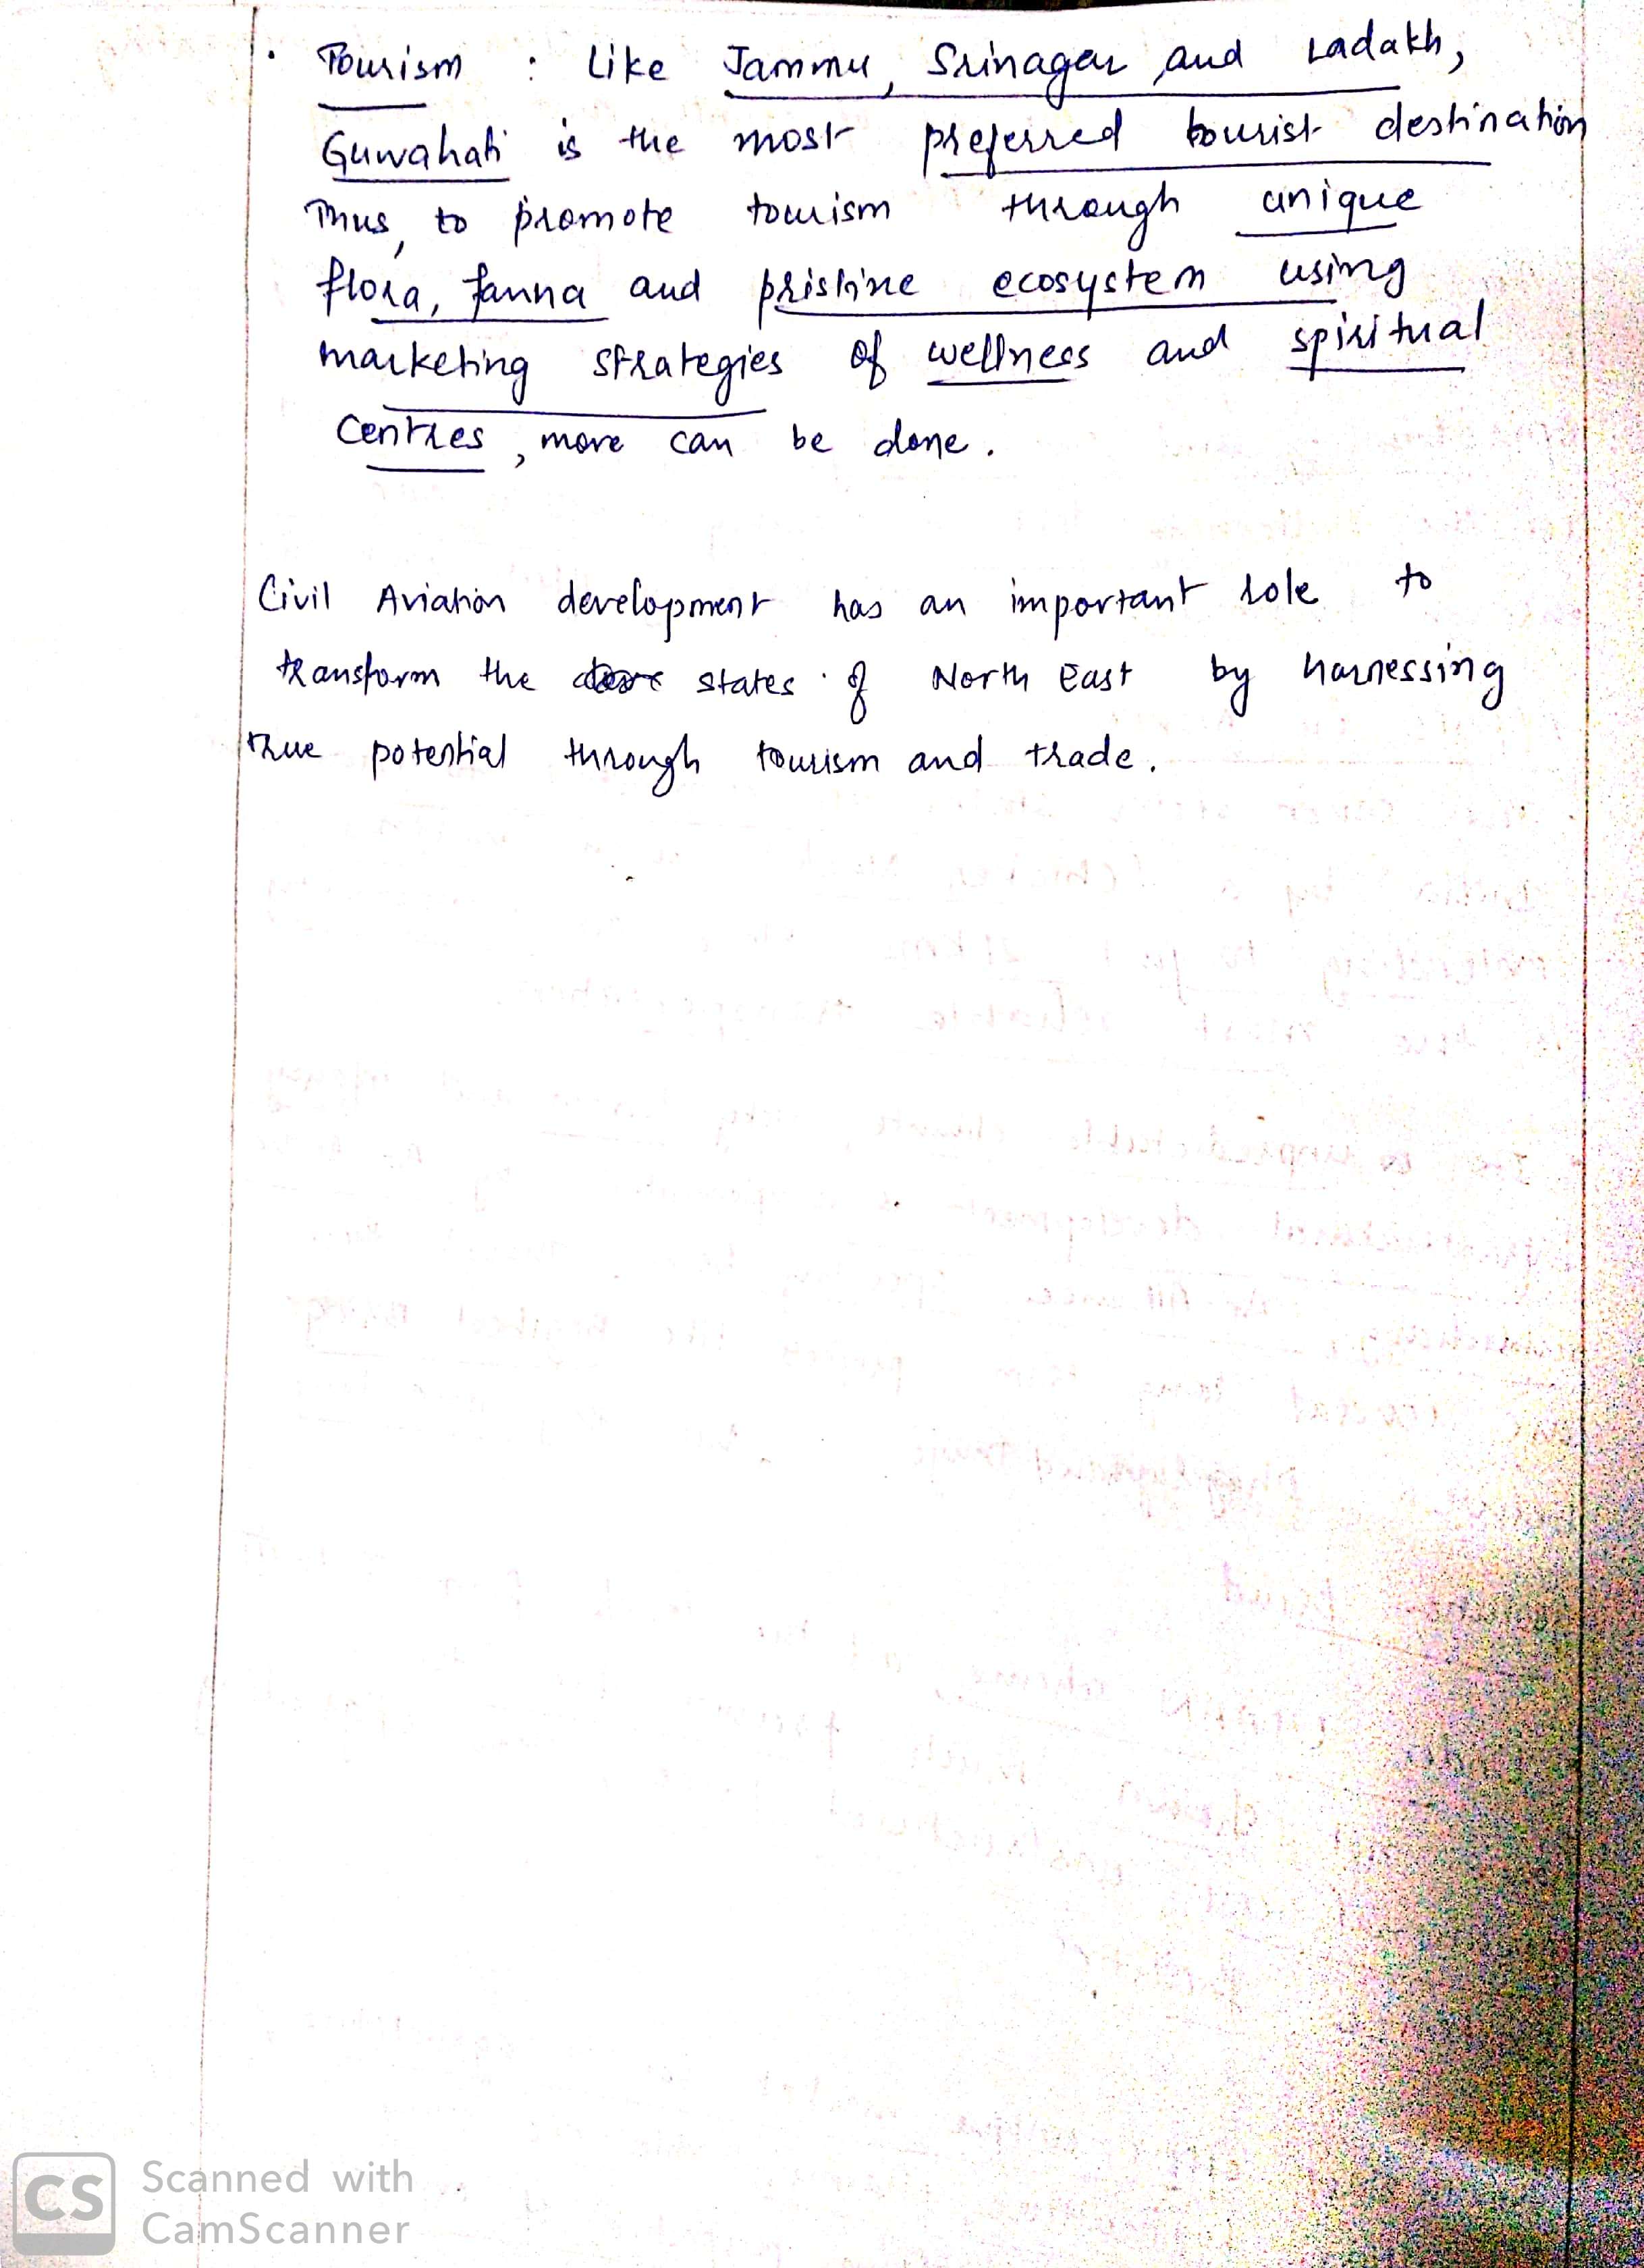 • Tourism : Like Jammu, Srinagar and Ladakh,
Guwahati is the most preferred tourist destination
Thus, to promote tourism through unique
flora, fanna and pristine ecosystem using
marketing strategies of wellness and spiritual
Centres, more can be done.
Civil Aviation development has an important role to
transform the states of North East by harnessing
true potential through tourism and trade.
CS Scanned with
CamScanner